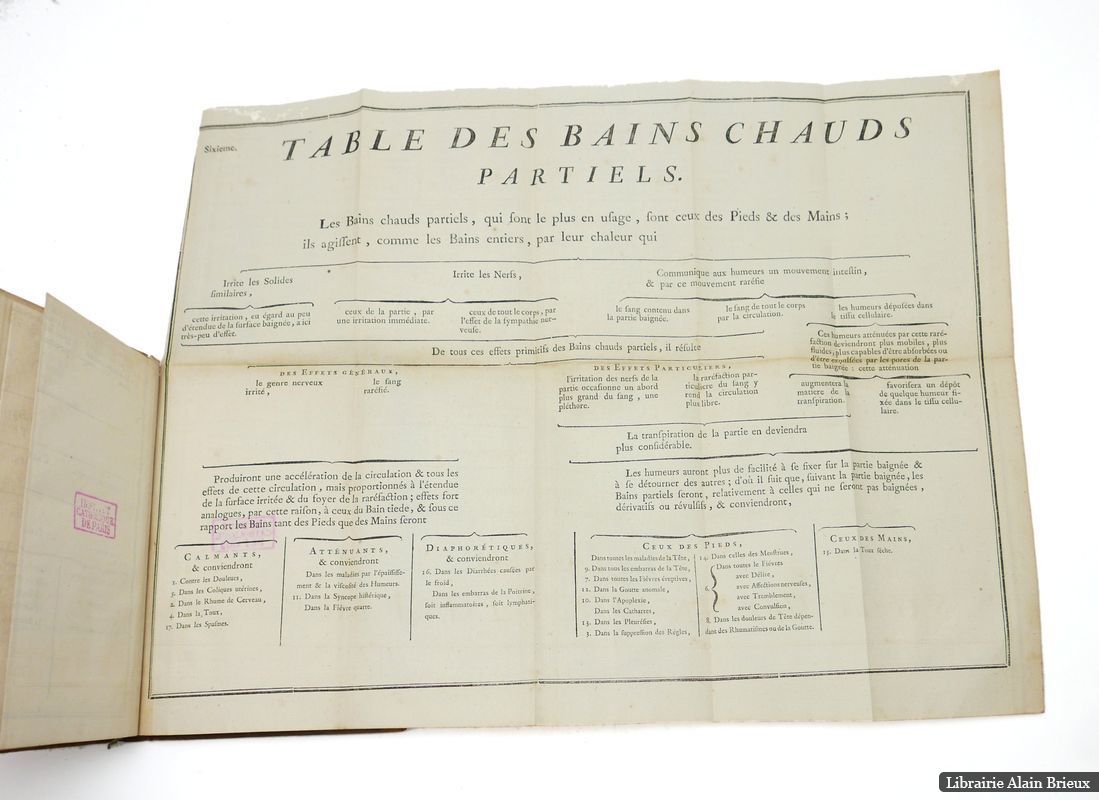 Sixieme.
TABLE DES BAINS CHAUDS
PARTIELS.
Les Bains chauds partiels, qui ſont le plus en uſage, ſont ceux des Pieds & des Mains;
ils agiſſent, comme les Bains entiers, par leur chaleur qui
Irrite les Solides
ſimilaires,
Irrite les Nerfs,
Communique aux humeurs un mouvement inteſtin,
& par ce mouvement raréfie
cette irritation, eu égard au peu
d'étendue de la ſurface baignée, a ici
très-peu d'effet.
ceux de la partie, par
une irritation immédiate.
ceux de tout le corps, par
l'effet de la ſympathie ner-
veuſe.
le ſang contenu dans
la partie baignée.
le ſang de tout le corps
par la circulation.
les humeurs dépoſées dans
le tiſſu cellulaire.
Ces humeurs atténuées par cette raré-
faction deviendront plus mobiles, plus
fluides, plus capables d'être abſorbées ou
d'être expulſées par les pores de la par-
tie baignée: cette atténuation
De tous ces effets primitifs des Bains chauds partiels, il réſulte
DES EFFETS GÉNÉRAUX,
le genre nerveux
irrité,
le ſang
raréfié.
DES EFFETS PARTICULIERS,
l'irritation des nerfs de la
partie occaſionne un abord
plus grand du ſang, une
pléthore.
la raréfaction par-
ticuliere du ſang y
rend la circulation
plus libre.
augmentera la
matiere de la
tranſpiration.
favoriſera un dépôt
de quelque humeur fi-
xée dans le tiſſu cellu-
laire.
La tranſpiration de la partie en deviendra
plus conſidérable.
Produiront une accélération de la circulation & tous les
effets de cette circulation, mais proportionnés à l'étendue
de la ſurface irritée & du foyer de la raréfaction; effets fort
analogues, par cette raiſon, à ceux du Bain tiede, & ſous ce
rapport les Bains tant des Pieds que des Mains ſeront
Les humeurs auront plus de facilité à ſe fixer ſur la partie baignée &
à ſe détourner des autres; d'où il ſuit que, ſuivant la partie baignée, les
Bains partiels ſeront, relativement à celles qui ne ſeront pas baignées,
dérivatifs ou révulſifs, & conviendront,
CALMANTS,
& conviendront
1. Contre les Douleurs,
5. Dans les Coliques utérines,
2. Dans le Rhume de Cerveau,
4. Dans la Toux,
17. Dans les Spaſmes.
ATTÉNUANTS,
& conviendront
Dans les maladies par l'épaiſſiſſe-
ment & la viſcoſité des Humeurs.
11. Dans la Syncope hiſtérique,
Dans la Fiévre quarte.
DIAPHORÉTIQUES,
& conviendront
16. Dans les Diarrhées cauſées par
le froid,
Dans les embarras de la Poitrine,
ſoit inflammatoires, ſoit lymphati-
ques.
CEUX DES PIEDS,
Dans toutes les maladies de la Tête,
9. Dans tous les embarras de la Tête,
7. Dans toutes les Fiévres éruptives,
12. Dans la Goutte anomale,
10. Dans l'Apoplexie,
Dans les Catharres,
13. Dans les Pleuréſies,
3. Dans la ſuppreſſion des Régles,
14. Dans celles des Menſtrues,
6. Dans toutes le Fiévres
avec Délire,
avec Affections nerveuſes,
avec Tremblement,
avec Convulſion,
8. Dans les douleurs de Tête dépen-
dant des Rhumatiſmes ou de la Goutte.
CEUX DES MAINS,
15. Dans la Toux ſéche.
CATHOLIQUE
DE PARIS
Librairie Alain Brieux